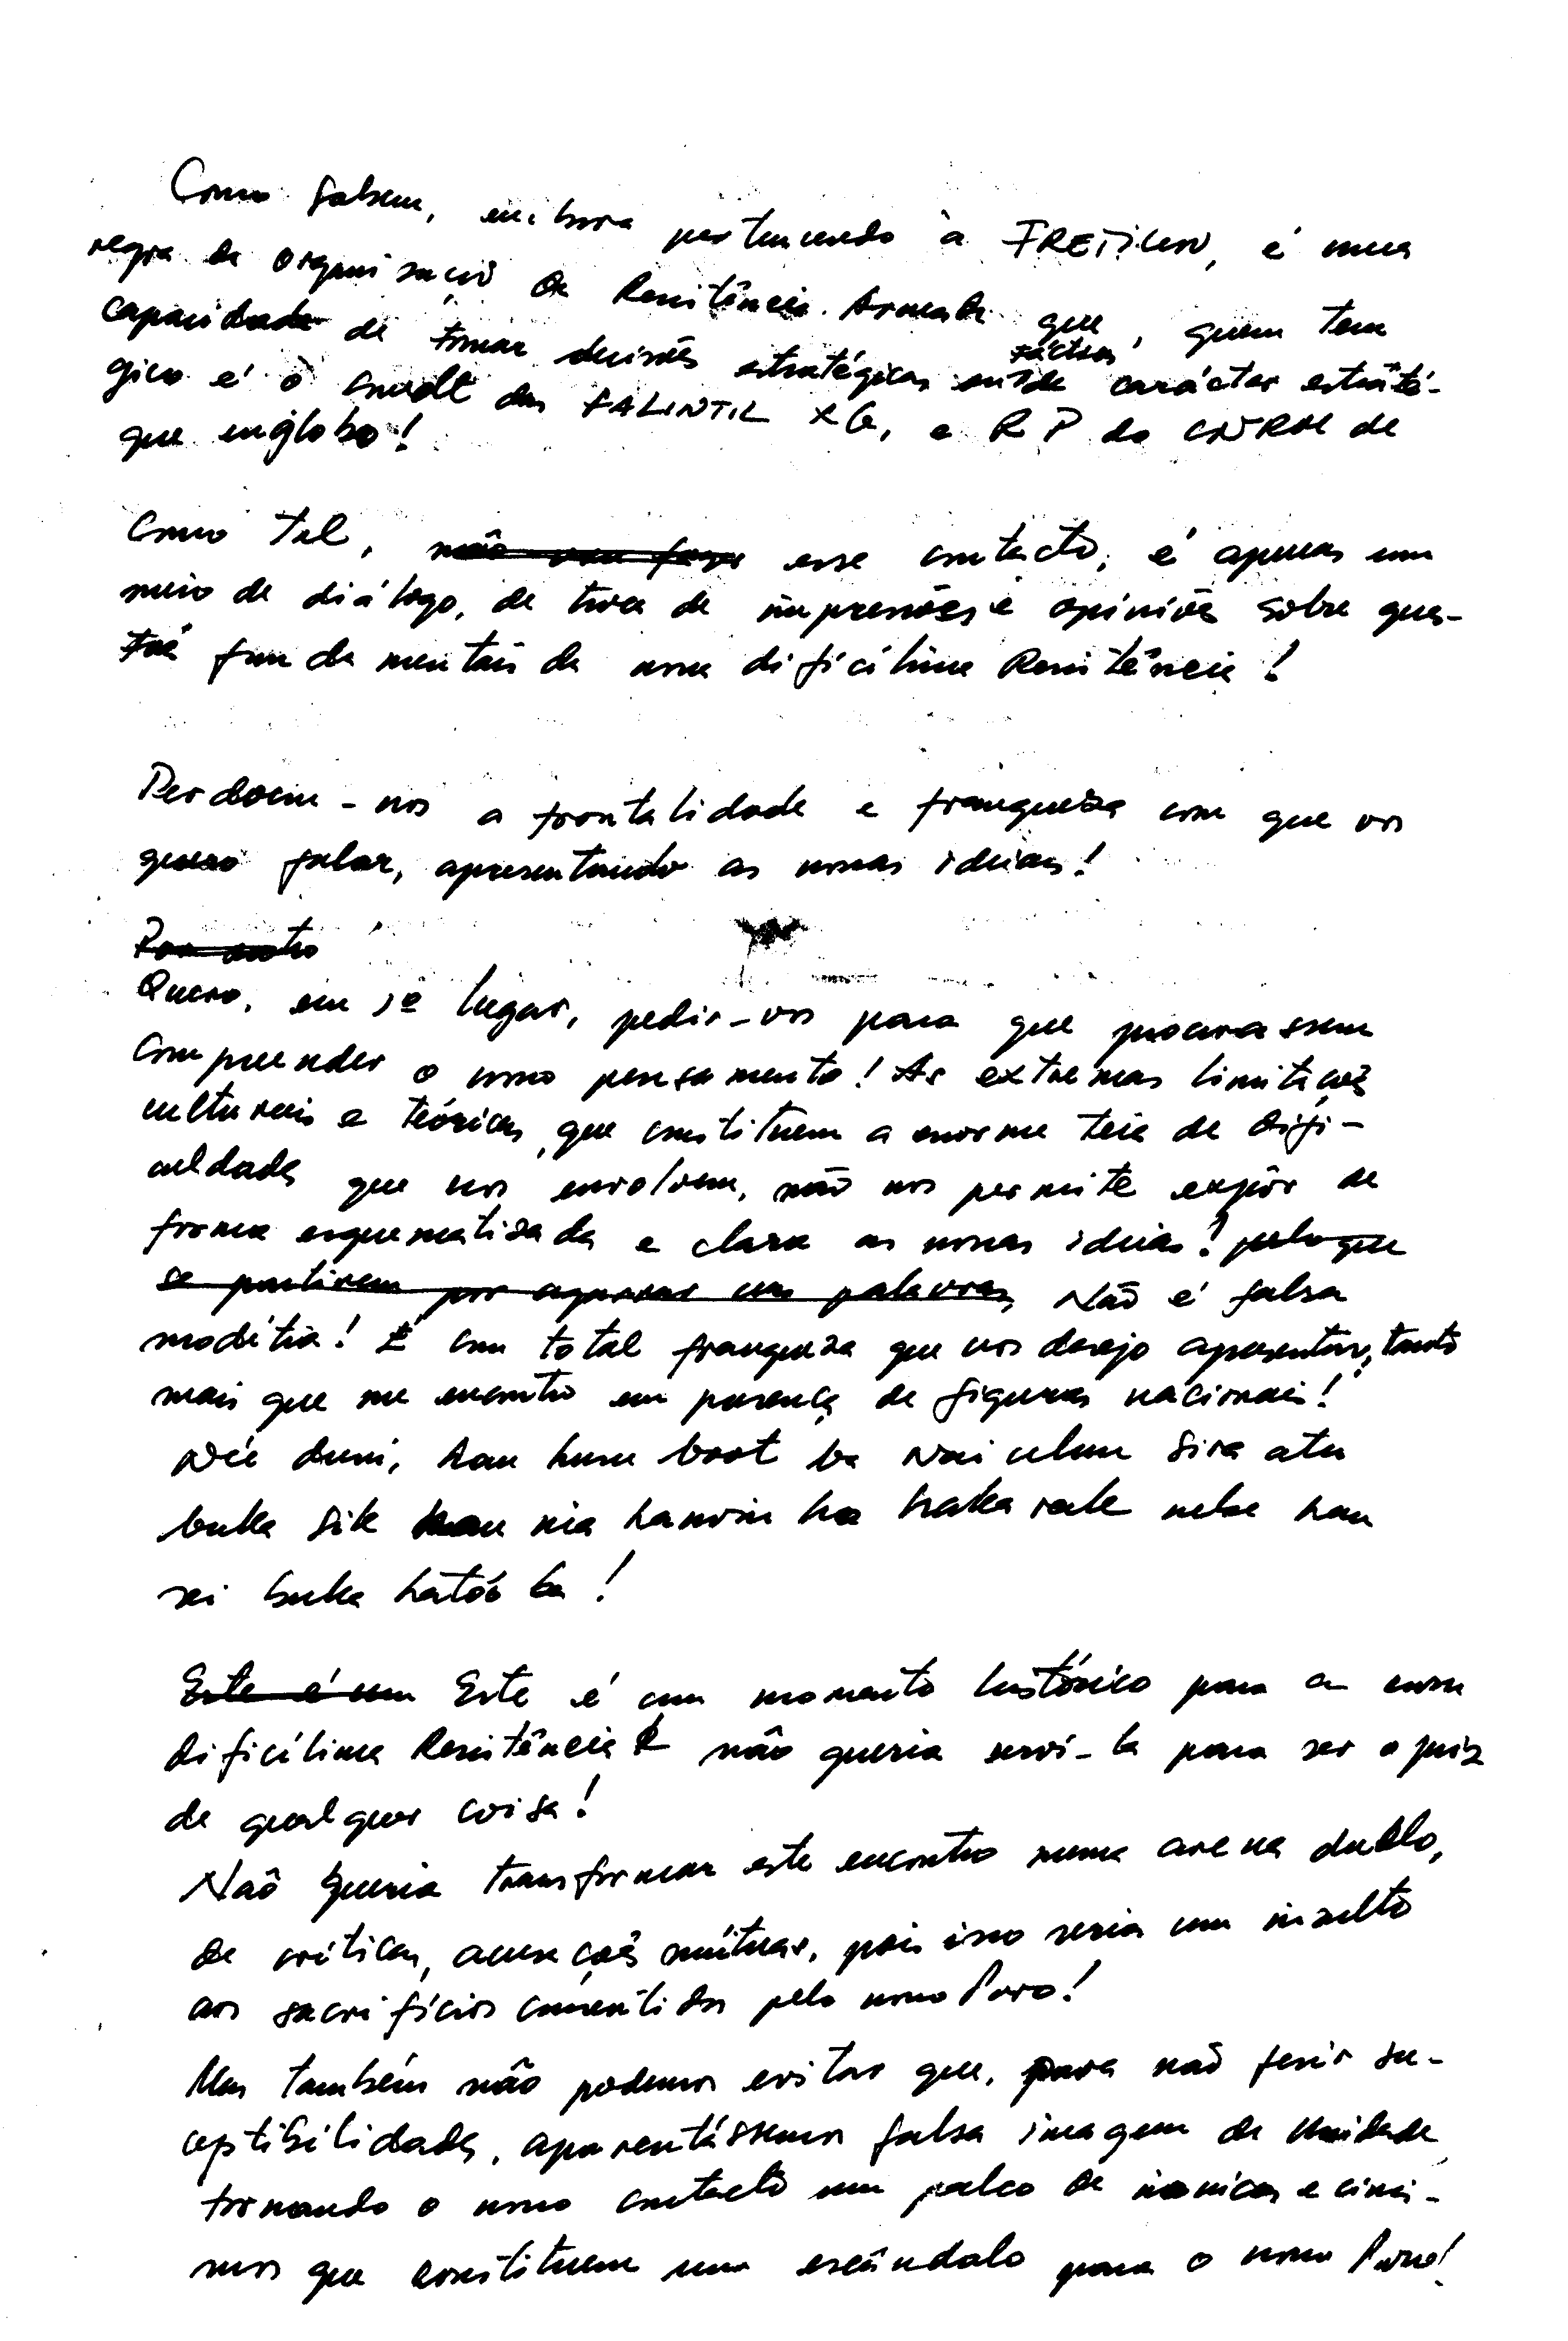 Como sabem, embora pertencendo à FRETILIN, é uma
regra de organização da Resistência Armada que, quem tem
capacidade de tomar decisões estratégicas ou de carácter estraté-
tácticas
gico é o das FALINTIL XG, e R P do CNRM de
que englobo!
Como tal, não vou fazer esse contacto, é apenas um
meio de diálogo, de troca de impressões e opiniões sobre ques-
tões fundamentais da nossa dificílima Resistência!
Perdoem-nos a frontalidade e franqueza com que vos
quero falar, apresentando as nossas ideias!
Por outro
Quero, em 1º lugar, pedir-vos para que procurassem
compreender o nosso pensamento! As extremas limitações
culturais e teóricas, que constituem a enorme teia de difi-
culdades que nos envolvem, não nos permite expôr de
forma esquematizada e clara as nossas ideias! pelo que
se partirem por as palavras, Não é falsa
modéstia! É com total franqueza que vos desejo apresentar, tanto
mais que me encontro em presença de figuras nacionais!
Né'e duni, hau husu boot ba Nai ulun sira atu
buka sik hau nia hanoin ho hakarak nebe hau
sei buka ható ba!
Este é um Este é um momento histórico para a nossa
dificílima Resistência E não queria servi-la para ser o juiz
de qualquer coisa!
Não queria transformar este encontro numa arena duelo,
de críticas, acusações mútuas, pois isso seria um insulto
aos sacrifícios consentidos pelo nosso Povo!
Mas também não podemos evitar que, para não ferir su-
ceptibilidades, aparentássemos falsa imagem de Unidade
tornando o nosso contacto um palco de ironias e cinis-
mos que constituem um escândalo para o nosso Povo!